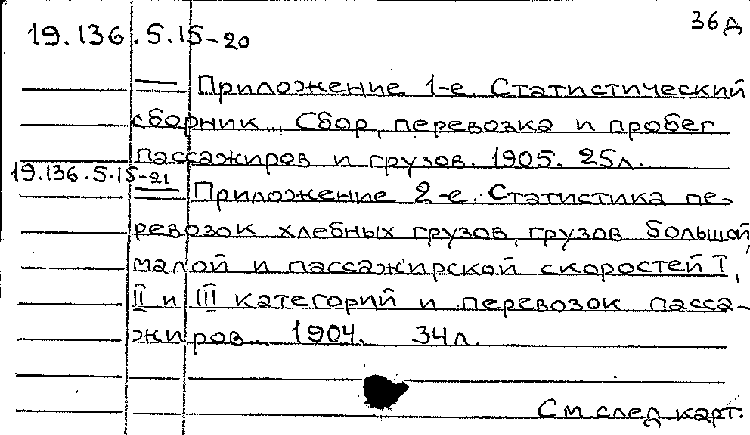 36д
19.136.5.15-20
— Приложение 1-е. Статистический
сборник. Сбор, перевозка и пробег
пассажиров и грузов. 1905. 25л.
19.136.5.15-21
— Приложение 2-е. Статистика пе-
ревозок хлебных грузов, грузов большой,
малой и пассажирской скоростей I,
II и III категорий и перевозок пасса-
жиров. 1904. 34л.
См след карт.